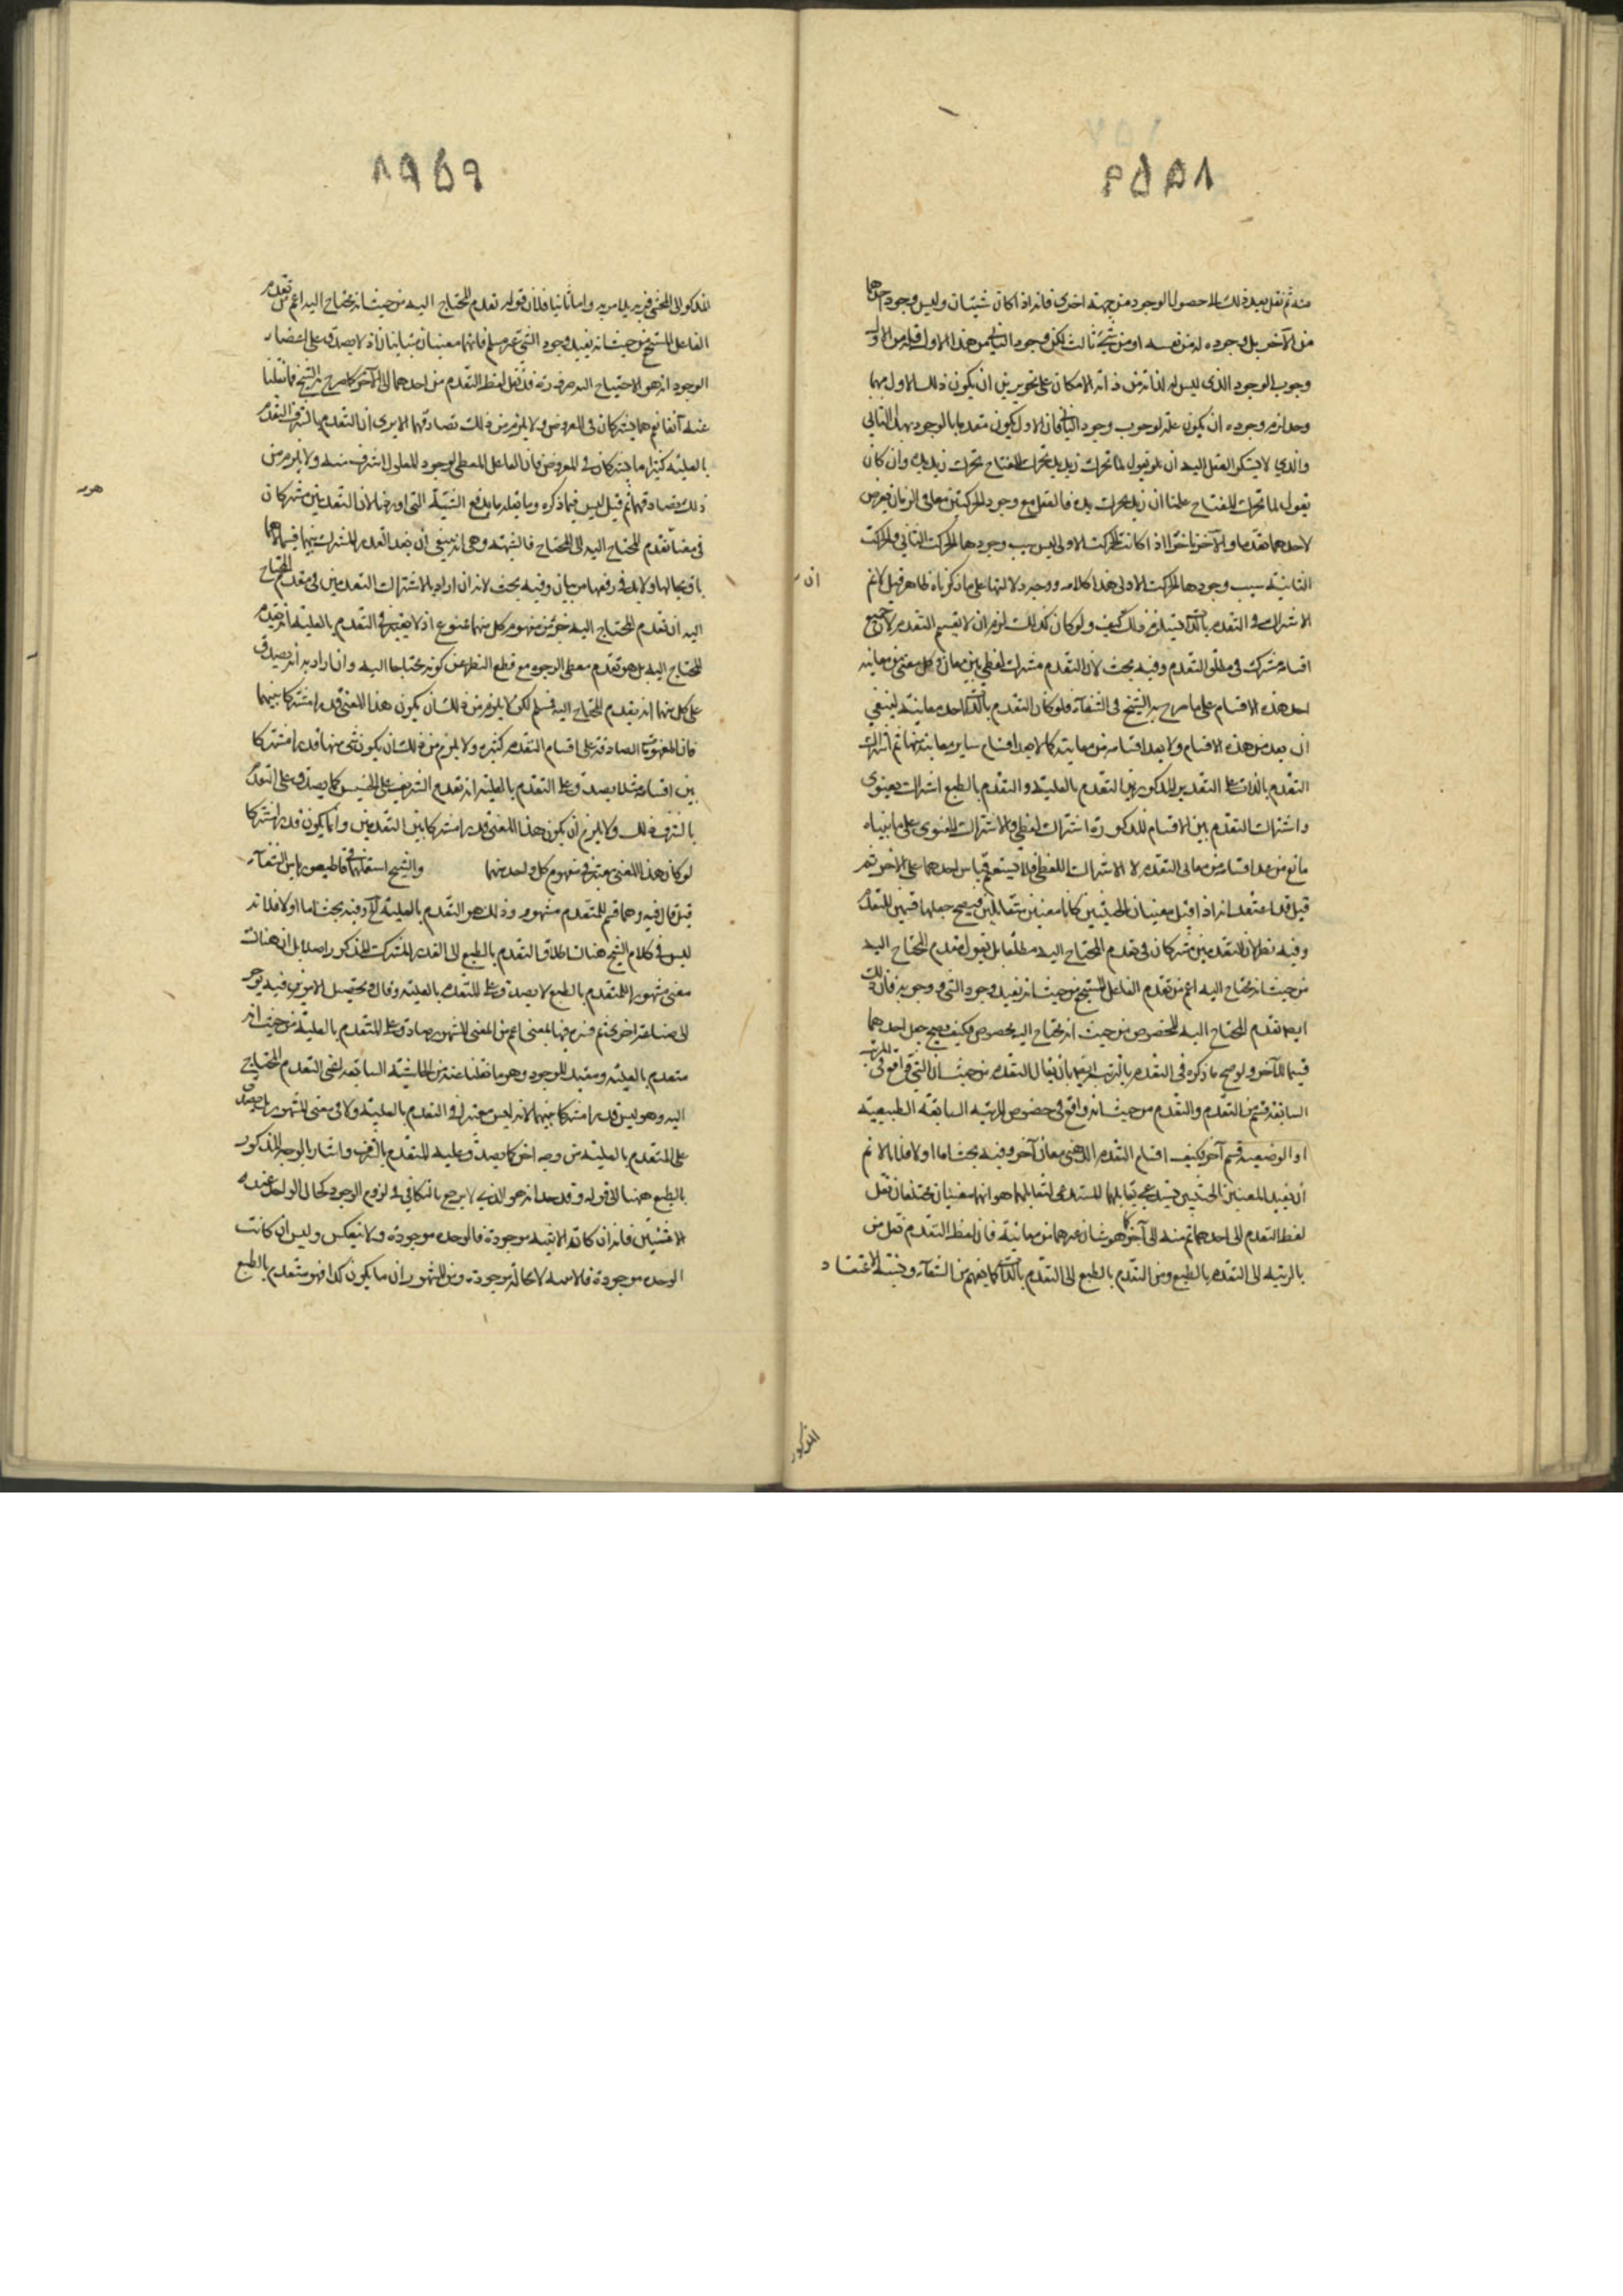 منه ثم نقل بعد ذلك الى حصول الوجود من جهة اخرى فانه اذا كان شيئان وليس وجود احدهما
من الآخر بل وجوده له من نفسه او من شيء ثالث لكن وجود الثاني من هذا الاول فله من الاول
وجوب الوجود الذي ليس له لذاته من ذاته الامكان على تجويز من ان يكون ذلك الاول مهما
وجد لزم وجوده ان يكون علة لوجوب وجود الثاني فان الاول يكون متقدما بالوجود لهذا الثاني
ولذلك لا يستنكر العقل البتة ان نقول لما تحرك زيد يده تحرك المفتاح تحرك زيد يده وان كان
يقول لما تحرك المفتاح علمنا ان زيدا تحرك يده فالعقل مع وجود الحركتين معا في الزمان يفرض
لاحدهما تقدما وللآخر تاخرا اذا كانت الحركة الاولى ليس سبب وجودها الحركة الثانية والحركة
الثانية سبب وجودها الحركة الاولى هذا كلامه ووجه دلالتها على ما ذكرناه ظاهر قيل لا نم
الاشتراك في التقدم بالذات كيف ولو كان كذلك لزم ان لا يقسم التقدم لان جميع
اقسامه مشترك في مطلق التقدم وفيه بحث لان التقدم مشترك لفظي بين معان وكل معنى من معانيه
احد هذه الاقسام على ما صرح به الشيخ في الشفاء فلو كان التقدم بالذات احد معانيه لينبغي
ان يعد من هذه الاقسام ولا يعد اقسامه من معانيه كما لا يعد اقسام ساير معانيه منها ثم اشتراك
التقدم بالذات على التقدير المذكور بين التقدم بالعلية والتقدم بالطبع اشتراك معنوي
واشتراك التقدم بين الاقسام المذكورة اشتراك لفظي والاشتراك المعنوي على ما بيناه
مانع من عد اقسامه من معاني التقدم لا الاشتراك اللفظي فلا يستقيم قياس احدهما على الآخر ثم
قيل قد اعتقد انه اذا قيل معنيان بالحيثيتين كانا معنيين متقابلين فيصح جعلهما قسمين للتقدم
وفيه نظر لان التقدمين مشتركان في تقدم المحتاج اليه مطلقا بل نقول تقدم المحتاج اليه
من حيث انه يحتاج اليه اعم من تقدم الفاعل المستجمع من حيث انه يفيد وجود الشيء ووجوبه فان ذلك
ايضا تقدم المحتاج اليه المخصوص من حيث انه يحتاج اليه بخصوص فكيف يصح جعل احدهما
قسيما للآخر ولو صح ما ذكره في التقدم بالرتبة ايضا بان يقال التقدم من حيث ان الشيء واقع في المرتبة
السابقة قسم من التقدم والتقدم من حيث انه واقع في خصوص المرتبة السابقة الطبيعية
او الوضعية قسم آخر فكيف اقسام التقدم الى معان آخر وفيه بحث اما اولا فلانا لا نم
ان تقييد المعنيين بالحيثيتين يستدعي تقابلهما المستدعي لتقابلهما هو انهما معنيان مختلفان نقل
لفظ التقدم الى احدهما ثم منه الى آخر كما هو شان غيرهما من معانيه فان لفظ التقدم نقل من
بالرتبة الى التقدم بالطبع ومن التقدم بالطبع الى التقدم بالذات كما يفهم من الشفاء ونسبة الاعتقاد
ان
المذكور
المذكور الى المحشي فرية بلا مرية واما ثانيا فلان قوله تقدم المحتاج اليه من حيث انه يحتاج اليه اعم من تقدم
الفاعل المستجمع من حيث انه يفيد وجود الشيء غير مسلم فانهما معنيان متباينان اذ لا يصدق على اعتبار
الوجود انه هو الاحتياج اليه ضرورة قد نقل لفظ التقدم من احدهما الى الآخر كما صرح به الشيخ فيما نقلنا
عنه آنفا نعم هما يشتركان في المعروض ولا يلزم من ذلك تصادقهما الا يرى ان التقدم بالشرف والتقدم
بالعلية كثيرا ما يشتركان في المعروض فان الفاعل المعطي لوجود المعلول اشرف منه ولا يلزم من
ذلك تصادقهما ثم قيل ليس فيما ذكره وما نقله ما يدفع الشبهة التي اوردها لان التقدمين مشتركان
في معنى تقدم المحتاج اليه الى المحتاج فالشبهة وهي انه ينبغي ان يعد القدر المشترك بينهما قسما لا هما
باق بحالها ولا بد في دفعها من بيان وفيه بحث لانه ان اراد بالاشتراك التقدمين في تقدم المحتاج
اليه ان تقدم المحتاج اليه جزء من مفهوم كل منهما ممنوع اذ لا يعتبر في التقدم بالعلية انه تقدم
المحتاج اليه بل هو تقدم معطي الوجود مع قطع النظر عن كونه محتاجا اليه وان اراد به انه يصدق
على كل منهما انه تقدم المحتاج اليه فمسلم لكن لا يلزم من ذلك ان يكون هذا المعنى قدرا مشتركا بينهما
فان المفهومات الصادقة على اقسام التقدم كثيرة ولا يلزم من ذلك ان يكون شيء منها قدرا مشتركا
بين اقسامه مثلا يصدق على التقدم بالعلية انه تقدم الشريف على الخسيس كما يصدق على التقدم
بالشرف ذلك ولا يلزم ان يكون هذا المعنى قدرا مشتركا بين التقدمين وانما يكون قدرا مشتركا
لو كان هذا المعنى معتبرا في مفهوم كل واحد منهما والشيخ استعملهما في قاطيغورياس الشفاء
قيل قال فيه وهما قسم للمتقدم مشهور وذلك هو التقدم بالعلية الخ وفيه بحث اما اولا فلانه
ليس في كلام الشيخ هناك اطلاق التقدم بالطبع الى القدر المشترك المذكور اصلا بل ان هناك
معنى مشهورا للمتقدم بالطبع لا يصدق على المتقدم بالعلية وقال وتحصيل الامرين فيه يوخر
الى صناعة اخرى ثم فسره فيها بمعنى اعم من المعنى المشهور صادق على المتقدم بالعلية من حيث انه
متقدم بالعلية ومفيد للوجود وهو ما نقلنا عنه في الحاشية السابقة لفي التقدم المحتاج
اليه وهو ليس قدرا مشتركا بينهما لانه ليس معتبرا في التقدم بالعلية ولا في معنى المشهور بل يصدق
على المتقدم بالعلية من وجه آخر كما يصدق عليه المتقدم بالشرف واشار بالوجه المذكور
بالطبع ههنا الى قوله وقد حد انه هو الذي لا يرجع بالتكافي في لزوم الوجود كحال الواحد عند
الاثنين فانه ان كانت الاثنينية موجودة فالوحدة موجودة ولا ينعكس وليس ان كانت
الوحدة موجودة فالاثنينية لا محالة موجودة ومن المشهور ان ما يكون كذا فهو متقدم بالطبع